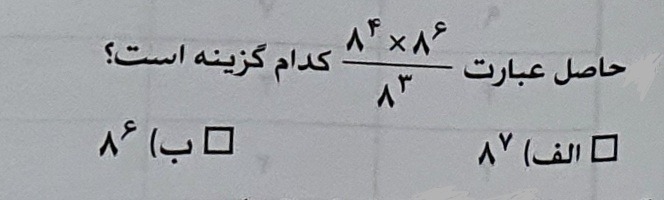 حاصل عبارت ۸^۴ × ۸^۶ / ۸^۳ کدام گزینه است؟
□ الف) ۸^۷ □ ب) ۸^۶